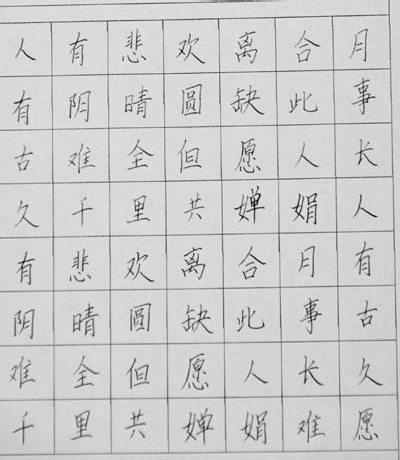 人有悲欢离合月
有阴晴圆缺此事
古难全但愿人长
久千里共婵娟人
有悲欢离合月有
阴晴圆缺此事古
难全但愿人长久
千里共婵娟难愿